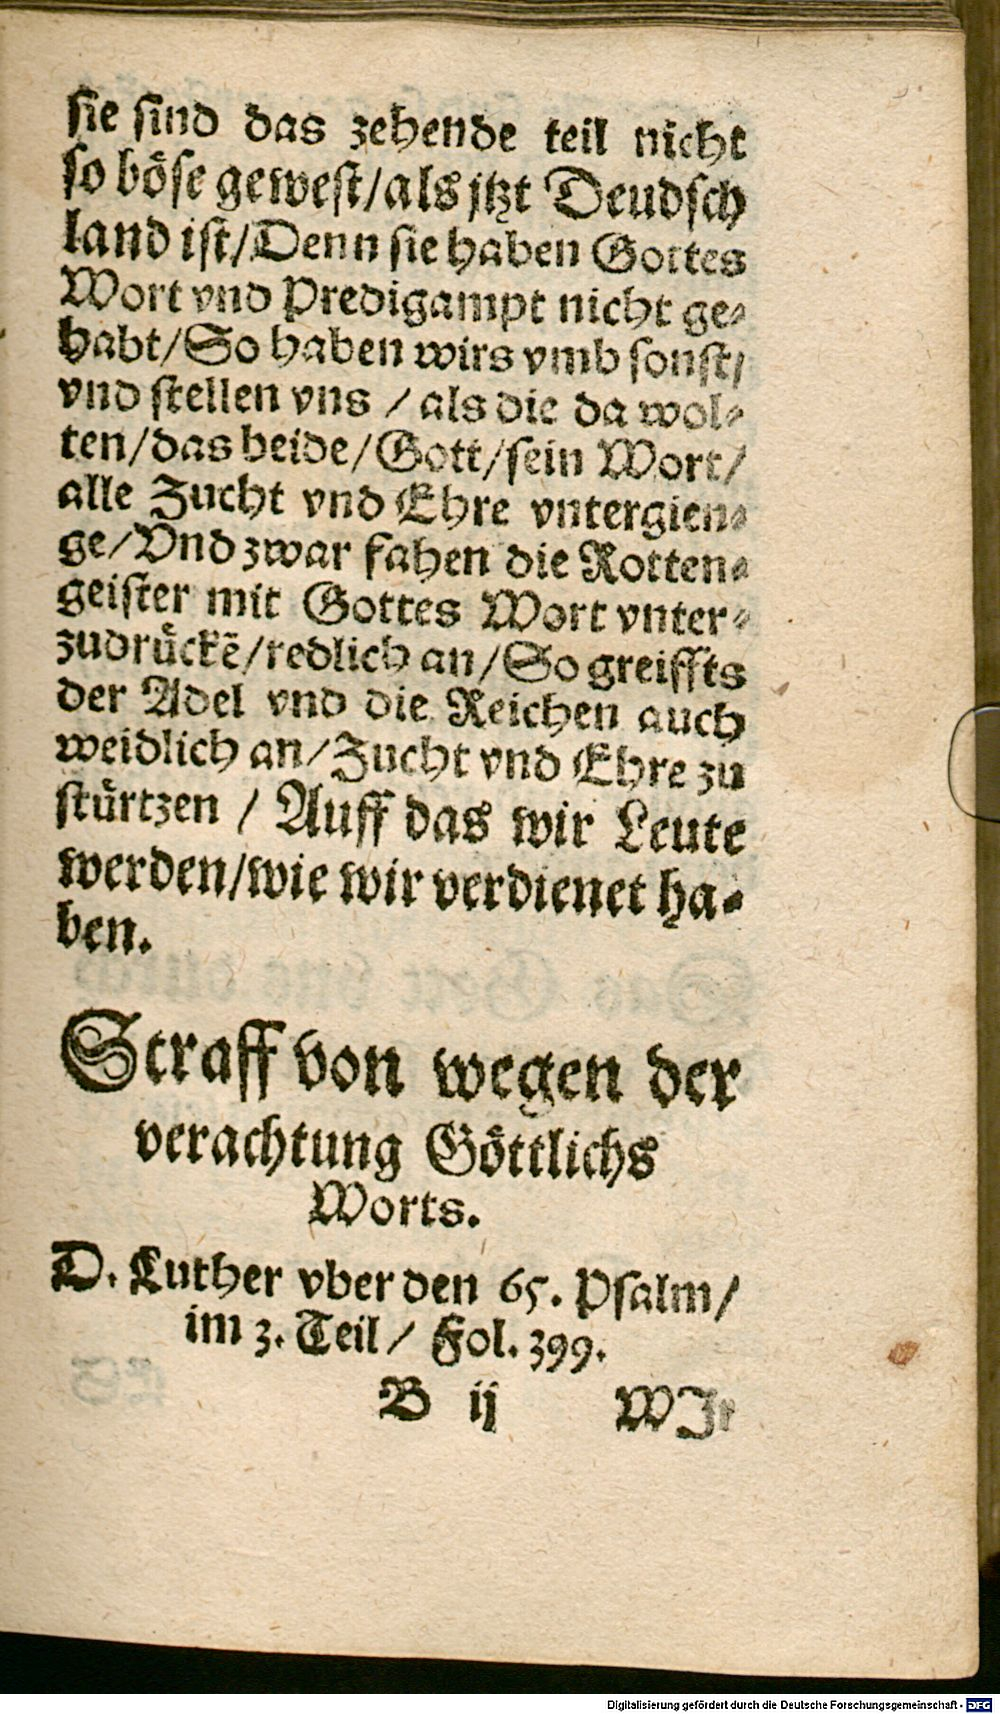 sie sind das zehende teil nicht
so böse gewest/als jtzt Deudsch
land ist/Denn sie haben Gottes
Wort vnd Predigampt nicht ge-
habt/So haben wirs vmb sonst/
vnd stellen vns / als die da wol-
ten/das beide/Gott/sein Wort/
alle Zucht vnd Ehre vntergien-
ge/Vnd zwar fahen die Rotten-
geister mit Gottes Wort vnter-
zudrückẽ/redlich an/So greiffts
der Adel vnd die Reichen auch
weidlich an/Zucht vnd Ehre zu
stürtzen / Auff das wir Leute
werden/wie wir verdienet ha-
ben.
Straff von wegen der
verachtung Göttlichs
Worts.
D. Luther vber den 65. Psalm/
im 3. Teil/ Fol. 399.
B ij WJr
Digitalisierung gefördert durch die Deutsche Forschungsgemeinschaft - DFG